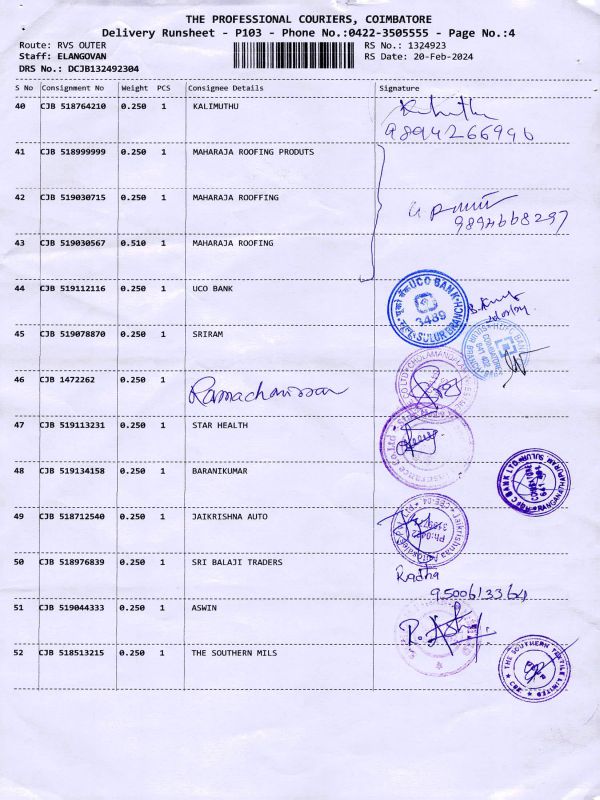 THE PROFESSIONAL COURIERS, COIMBATORE
Delivery Runsheet - P103 - Phone No.:0422-3505555 - Page No.:4
Route: RVS OUTER
RS No.: 1324923
Staff: ELANGOVAN
RS Date: 20-Feb-2024
DRS No.: DCJB132492304
S No Consignment No Weight PCS Consignee Details Signature
40 CJB 518764210 0.250 1 KALIMUTHU
9894266996
41 CJB 518999999 0.250 1 MAHARAJA ROOFING PRODUTS
42 CJB 519030715 0.250 1 MAHARAJA ROOFFING
9894668297
43 CJB 519030567 0.510 1 MAHARAJA ROOFING
44 CJB 519112116 0.250 1 UCO BANK
UCO BANK
3469
SULUR BRANCH
45 CJB 519078870 0.250 1 SRIRAM
46 CJB 1472262 0.250 1 Ramachandran
47 CJB 519113231 0.250 1 STAR HEALTH
48 CJB 519134158 0.250 1 BARANIKUMAR
49 CJB 518712540 0.250 1 JAIKRISHNA AUTO
50 CJB 518976839 0.250 1 SRI BALAJI TRADERS Radha
9500613364
51 CJB 519044333 0.250 1 ASWIN
52 CJB 518513215 0.250 1 THE SOUTHERN MILS